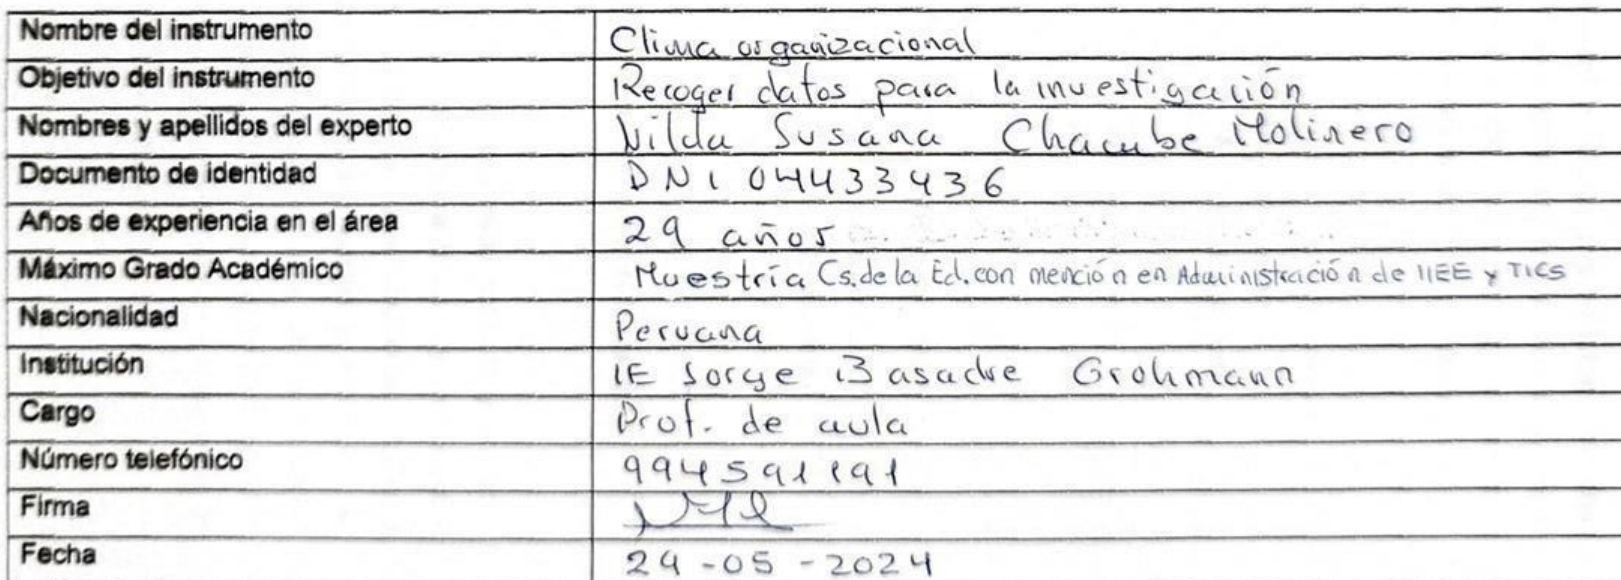 Nombre del instrumento Clima organizacional
Objetivo del instrumento Recoger datos para la investigación
Nombres y apellidos del experto Nilda Susana Chacube Molinero
Documento de identidad DNI 04433436
Años de experiencia en el área 29 años
Máximo Grado Académico Maestría Cs. de la Ed. con mención en Administración de IIEE y TICS
Nacionalidad Peruana
Institución IE Jorge Basadre Grohmann
Cargo Prof. de aula
Número telefónico 994591191
Firma
Fecha 24-05-2024